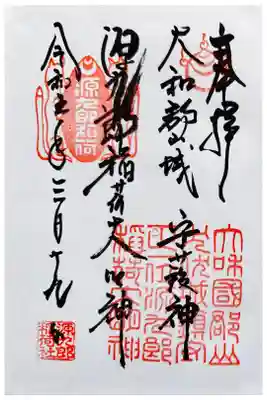 奉拝
大和郡山城 守護神
源九郎稲荷大明神
令和五年二月十九
源九郎稲荷
大和國郡山